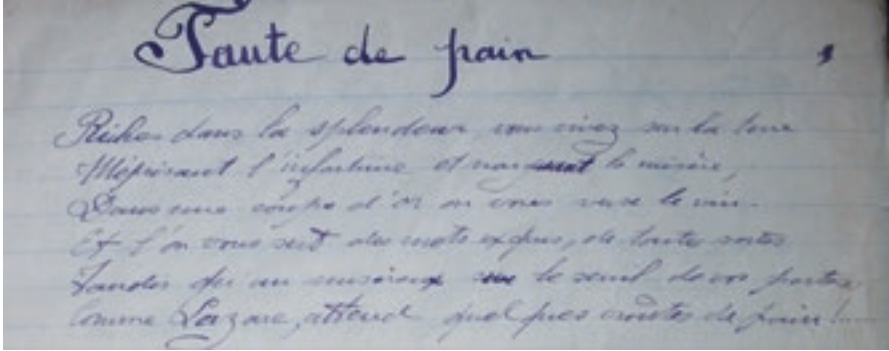 Faute de pain
Riches dans la splendeur, vous vivez sur la terre
Méprisant l'infortune et narguant la misère,
Dans une coupe d'or on vous verse le vin.
Et l'on vous sert des mets exquis, de toutes sortes
Tandis qu'un miséreux sur le seuil de vos portes
Comme Lazare, attend quelques croûtes de pain !....